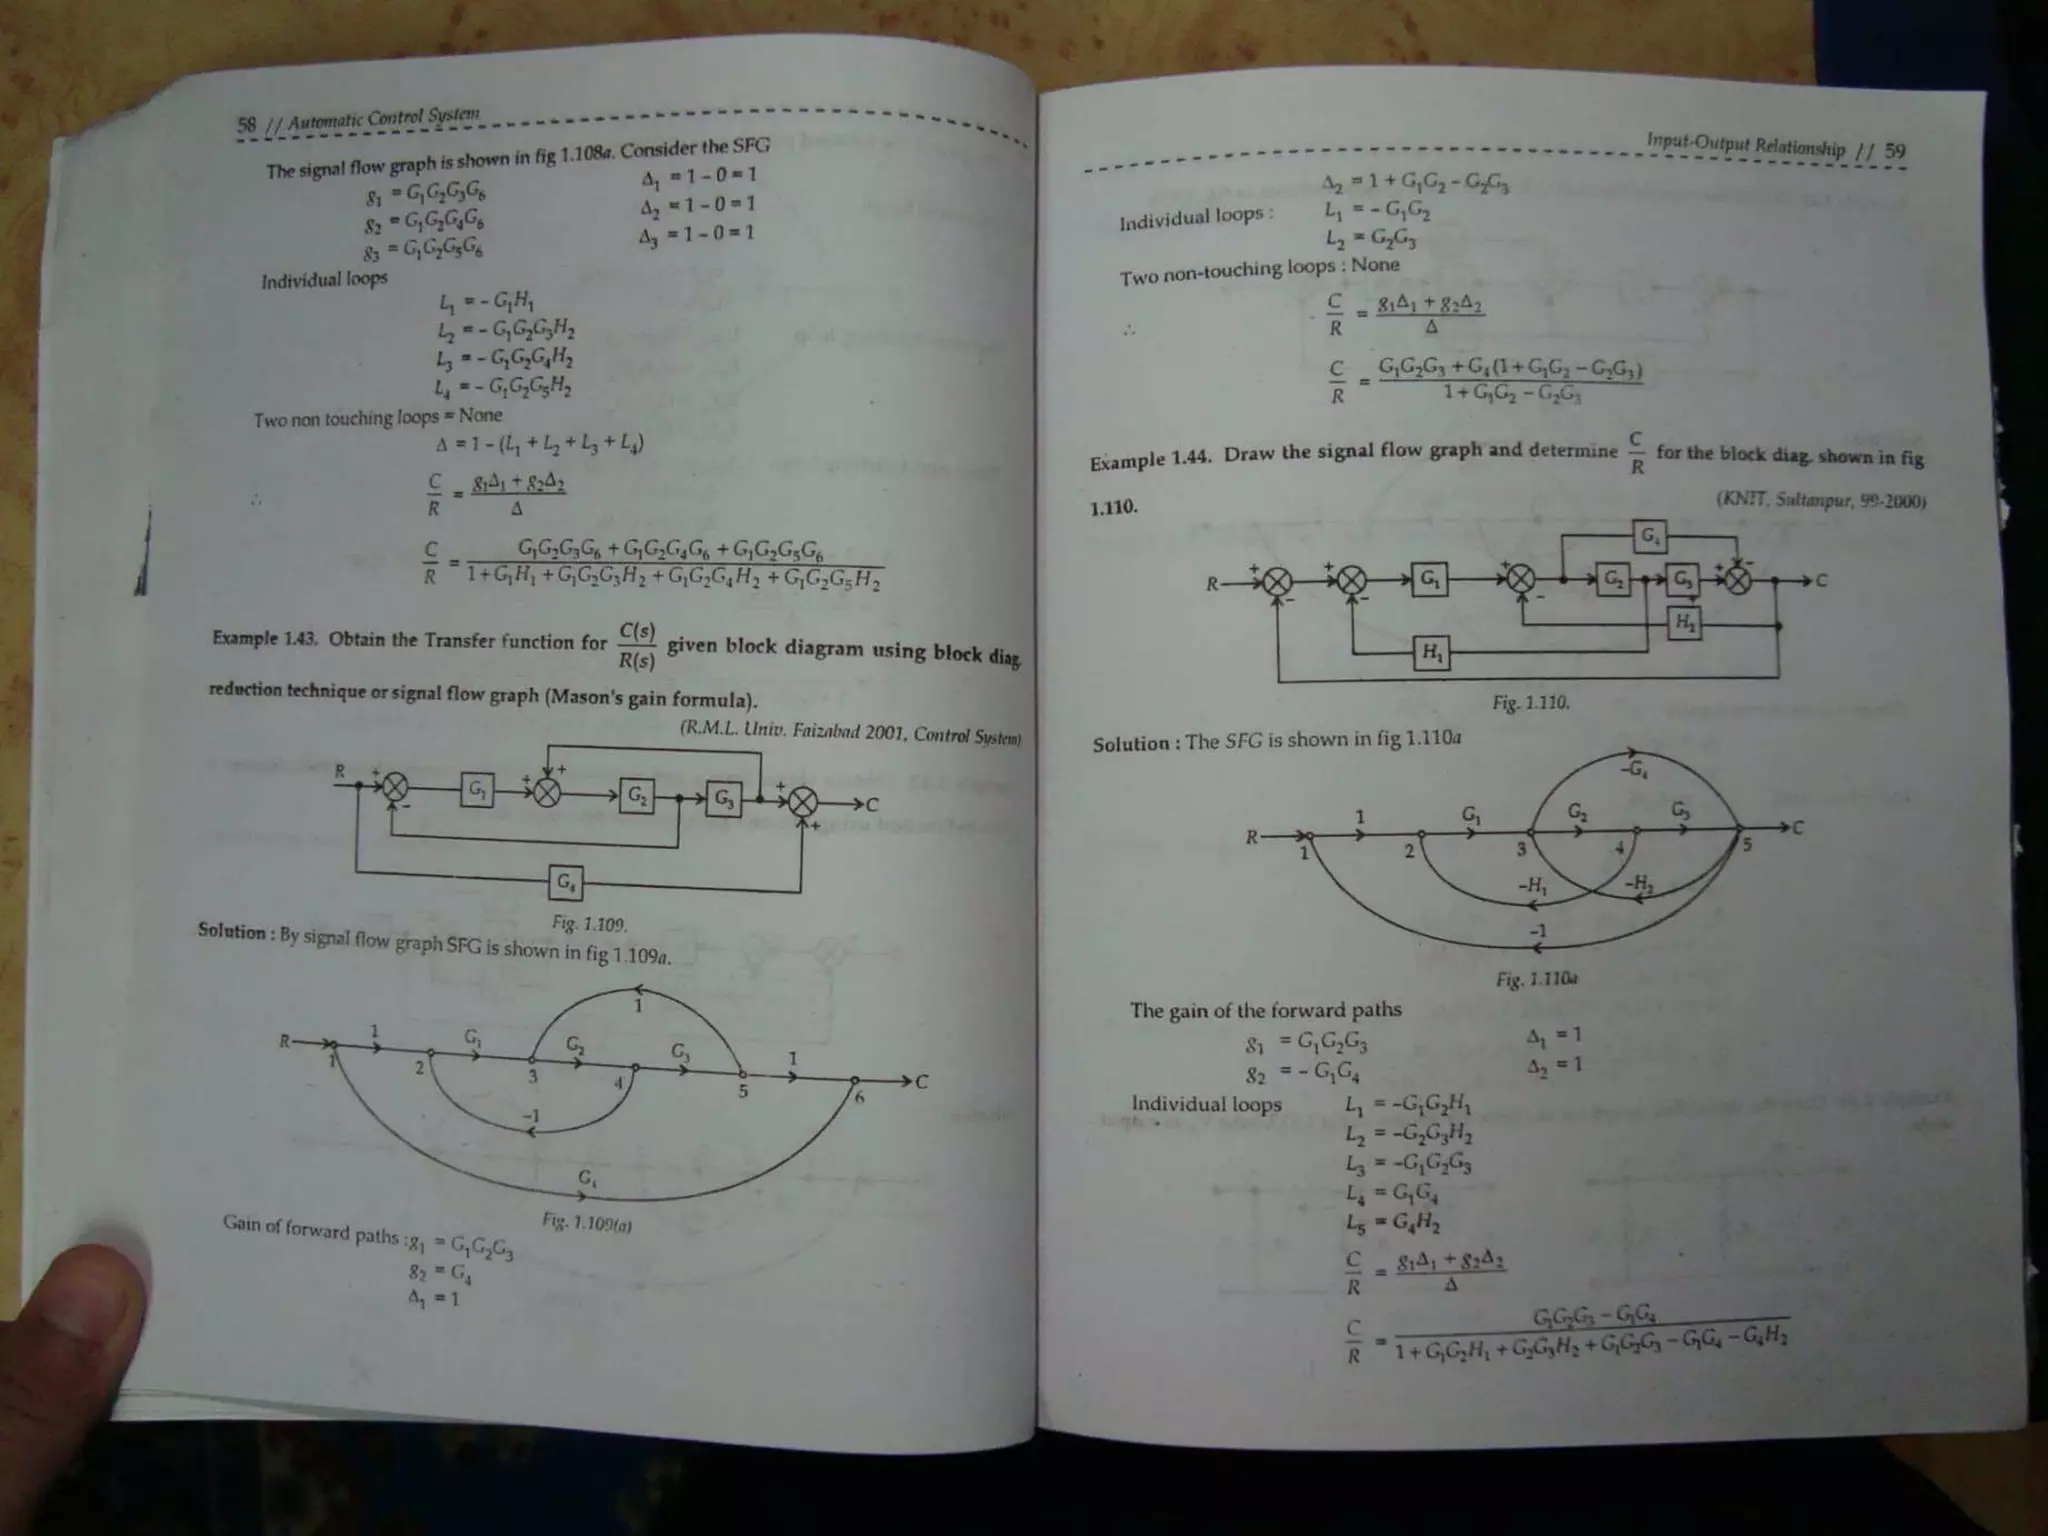 58 // Automatic Control System
The signal flow graph is shown in fig 1.108a. Consider the SFG
g₁ = G₁G₂G₃G₆ Δ₁ = 1 – 0 = 1
g₂ = G₁G₂G₄G₆ Δ₂ = 1 – 0 = 1
g₃ = G₁G₂G₅G₆ Δ₃ = 1 – 0 = 1
Individual loops
L₁ = – G₁H₁
L₂ = – G₁G₂G₃H₂
L₃ = – G₁G₂G₄H₂
L₄ = – G₁G₂G₅H₂
Two non touching loops = None
Δ = 1 – (L₁ + L₂ + L₃ + L₄)
∴ C/R = (g₁Δ₁ + g₂Δ₂)/Δ
C/R = (G₁G₂G₃G₆ + G₁G₂G₄G₆ + G₁G₂G₅G₆)/(1 + G₁H₁ + G₁G₂G₃H₂ + G₁G₂G₄H₂ + G₁G₂G₅H₂)
Example 1.43. Obtain the Transfer function for C(s)/R(s) given block diagram using block diag.
reduction technique or signal flow graph (Mason's gain formula).
(R.M.L. Univ. Faizabad 2001, Control System)
R + – G₁ + + G₂ G₃ + + C
G₄
Fig. 1.109.
Solution : By signal flow graph SFG is shown in fig 1.109a.
1
R 1 1 2 G₁ 3 G₂ 4 G₃ 5 1 6 C
–1
G₄
Fig. 1.109(a)
Gain of forward paths : g₁ = G₁G₂G₃
g₂ = G₄
Δ₁ = 1
Input-Output Relationship // 59
Δ₂ = 1 + G₁G₂ – G₂G₃
Individual loops : L₁ = – G₁G₂
L₂ = G₂G₃
Two non-touching loops : None
∴ C/R = (g₁Δ₁ + g₂Δ₂)/Δ
C/R = (G₁G₂G₃ + G₄(1 + G₁G₂ – G₂G₃))/(1 + G₁G₂ – G₂G₃)
Example 1.44. Draw the signal flow graph and determine C/R for the block diag. shown in fig
1.110.
(KNIT, Sultanpur, 99-2000)
G₄
R + – + – G₁ + – G₂ G₃ + – C
H₂
H₁
Fig. 1.110.
Solution : The SFG is shown in fig 1.110a
–G₄
R 1 1 2 G₁ 3 G₂ 4 G₃ 5 C
–H₁ –H₂
–1
Fig. 1.110a
The gain of the forward paths
g₁ = G₁G₂G₃ Δ₁ = 1
g₂ = – G₁G₄ Δ₂ = 1
Individual loops L₁ = –G₁G₂H₁
L₂ = –G₂G₃H₂
L₃ = –G₁G₂G₃
L₄ = G₁G₄
L₅ = G₄H₂
C/R = (g₁Δ₁ + g₂Δ₂)/Δ
C/R = (G₁G₂G₃ – G₁G₄)/(1 + G₁G₂H₁ + G₂G₃H₂ + G₁G₂G₃ – G₁G₄ – G₄H₂)